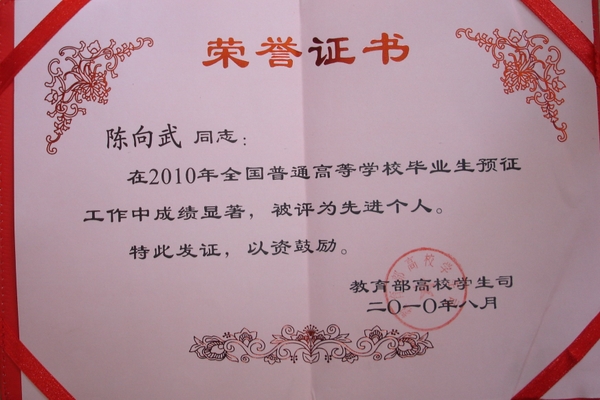 荣誉证书
陈向武 同志：
在2010年全国普通高等学校毕业生预征
工作中成绩显著，被评为先进个人。
特此发证，以资鼓励。
教育部高校学生司
二〇一〇年八月